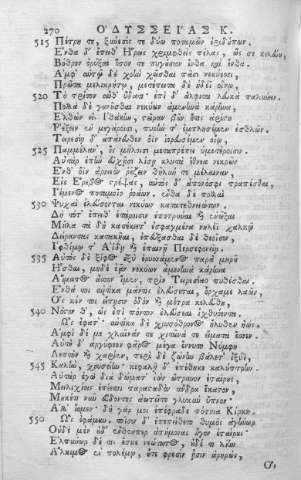 270 ὈΔΥΣΣΕΊΑΣ Κ.
515 Πέτρη τε, ξύνεσίς τε δύω ποταμῶν ἐριδούπων.
Ἔνθα δ' ἔπειθ' Ἥρως χριμφθεὶς πέλας, ὥς σε κελεύω,
Βόθρον ὀρύξαι ὅσον τε πυγούσιον ἔνθα καὶ ἔνθα.
Ἀμφ' αὐτῷ δὲ χοὴν χεῖσθαι πᾶσι νεκύεσσι,
Πρῶτα μελικρήτῳ, μετέπειτα δὲ ἡδέϊ οἴνῳ,
520 Τὸ τρίτον αὖθ' ὕδατι· ἐπὶ δ' ἄλφιτα λευκὰ παλύνειν.
Πολλὰ δὲ γουνοῦσθαι νεκύων ἀμενηνὰ κάρηνα,
Ἐλθὼν εἰς Ἰθάκην, στεῖραν βοῦν ἥτις ἀρίστη
Ῥέξειν ἐν μεγάροισι, πυρήν τ' ἐμπλησέμεν ἐσθλῶν.
Τειρεσίῃ δ' ἀπάνευθεν ὄϊν ἱερευσέμεν οἴῳ,
525 Παμμέλαν', ὃς μήλοισι μεταπρέπει ὑμετέροισιν.
Αὐτὰρ ἐπὴν εὐχῇσι λίσῃ κλυτὰ ἔθνεα νεκρῶν
Ἔνθ' ὄϊν ἀρνειὸν ῥέζειν θῆλύν τε μέλαιναν,
Εἰς Ἔρεβος τρέψας, αὐτὸς δ' ἀπονόσφι τραπέσθαι,
Ἱέμενος ποταμοῖο ῥοάων, ἔνθα δὲ πολλαὶ
530 Ψυχαὶ ἐλεύσονται νεκύων κατατεθνειώτων.
Δὴ τότ' ἔπειθ' ἑτάροισιν ἐποτρῦναι καὶ ἀνῶξαι
Μῆλα τὰ δὴ κατάκειτ' ἐσφαγμένα νηλέϊ χαλκῷ
Δείραντας κατακεῖαι, ἐπεύξασθαι δὲ θεοῖσιν,
Ἰφθίμῳ τ' Ἀΐδῃ καὶ ἐπαινῇ Περσεφονείῃ.
535 Αὐτὸς δὲ ξίφος ὀξὺ ἐρυσσάμενος παρὰ μηροῦ
Ἧσθαι, μηδὲ ἐᾶν νεκύων ἀμενηνὰ κάρηνα
Αἵματος ἆσσον ἴμεν, πρὶν Τειρεσίαο πυθέσθαι.
Ἔνθά τοι αὐτίκα μάντις ἐλεύσεται, ὄρχαμε λαῶν,
Ὅς κέν τοι εἴπῃσιν ὁδὸν καὶ μέτρα κελεύθου,
540 Νόστον θ', ὡς ἐπὶ πόντον ἐλεύσεαι ἰχθυόεντα.
Ὣς ἔφατ'· αὐτίκα δὲ χρυσόθρονος ἤλυθεν ἠώς.
Ἀμφὶ δέ με χλαῖνάν τε χιτῶνά τε εἵματα ἕσσεν·
Αὐτὴ δ' ἀργύφεον φᾶρος μέγα ἕννυτο Νύμφη
Λεπτὸν καὶ χαρίεν, περὶ δὲ ζώνην βάλετ' ἰξυῖ,
545 Καλὴν, χρυσείην· κεφαλῇ δ' ἐπέθηκε καλύπτρην.
Αὐτὰρ ἐγὼ διὰ δώματ' ἰὼν ὤτρυνον ἑταίρους,
Μειλιχίοις ἐπέεσσι παρασταδὸν ἄνδρα ἕκαστον,
Μηκέτι νῦν εὕδοντες ἀωτεῖτε γλυκὺν ὕπνον·
Ἀλλ' ἴομεν· δὴ γάρ μοι ἐπέφραδε πότνια Κίρκη.
550 Ὣς ἐφάμην, τοῖσιν δ' ἐπεπείθετο θυμὸς ἀγήνωρ
Οὐδὲ μὲν οὐδ' ἔνθεν περ ἀπήμονας ἦγον ἑταίρους·
Ἐλπήνωρ δέ τις ἔσκε νεώτατος, οὐδέ τι λίην
Ἄλκιμος ἐν πολέμῳ, οὔτε φρεσὶν ᾗσιν ἀρηρώς,